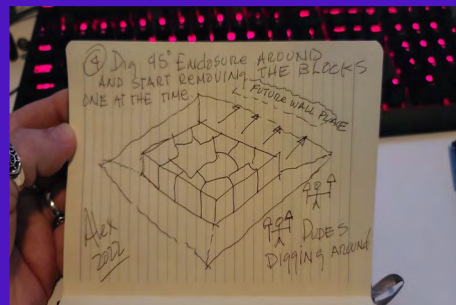 ④ Dig 45° Enclosure AROUND
AND START REMOVING THE BLOCKS
ONE AT THE TIME.
FUTURE WALL PLACE
Alex
2022
DUDES
DIGGING AROUND